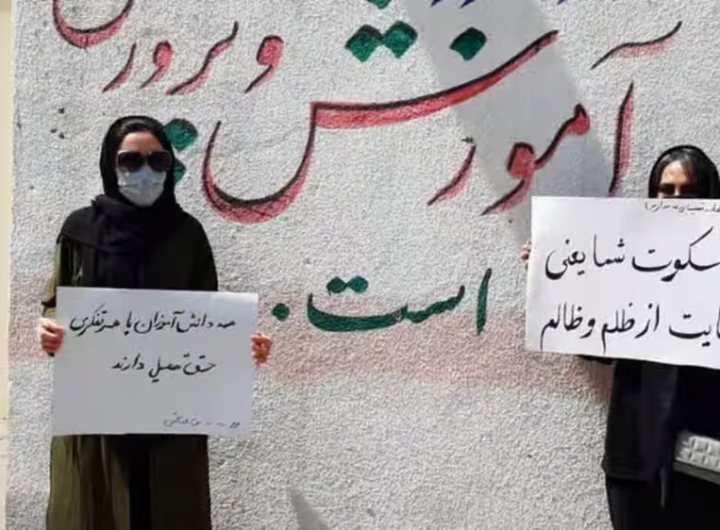 آموزش و پرورش
است.
همه دانش آموزان با هر تفکری
حق تحصیل دارند
سکوت شما یعنی
حمایت از ظلم و ظالم